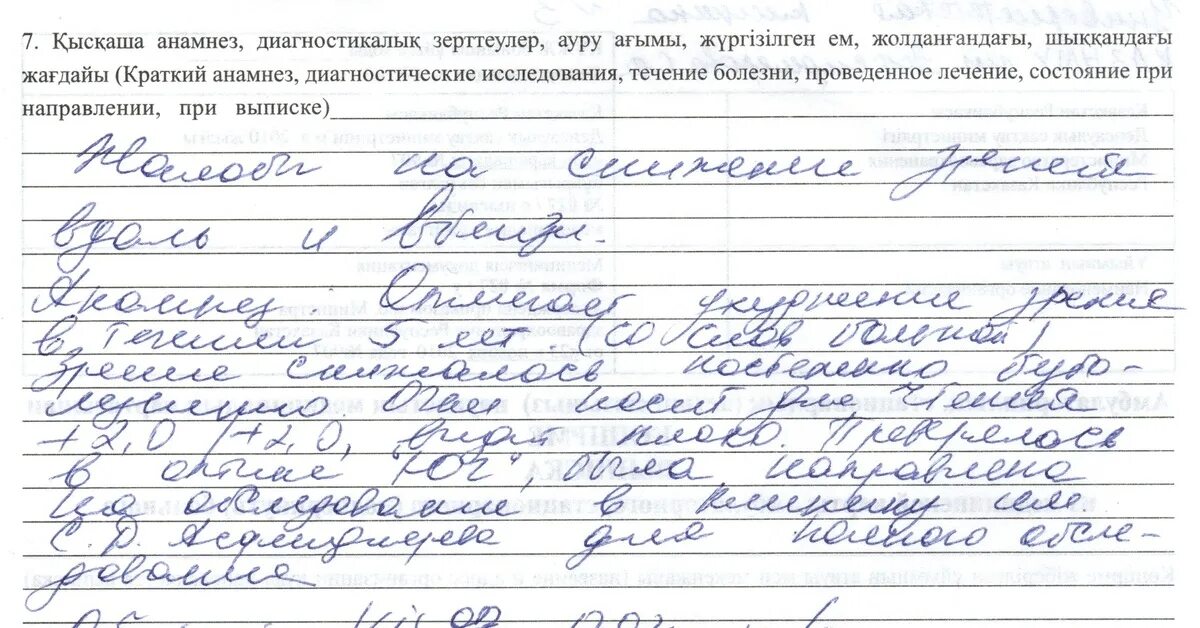 7. Қысқаша анамнез, диагностикалық зерттеулер, ауру ағымы, жүргізілген ем, жолданғандағы, шыққандағы
жағдайы (Краткий анамнез, диагностические исследования, течение болезни, проведенное лечение, состояние при
направлении, при выписке)
Жалобы на снижение зрения
вдаль и вблизи.
Анамнез. Отмечает ухудшение зрения
в течении 5 лет (со слов больной)
Зрение снижалось постепенно
носит для чтения
+2,0 /+2,0, видит плохо. Проверялось
в оптике "Юг", была направлена
на обследование в клинику им
С.Д. Асфендиярова для полного обсле-
дования